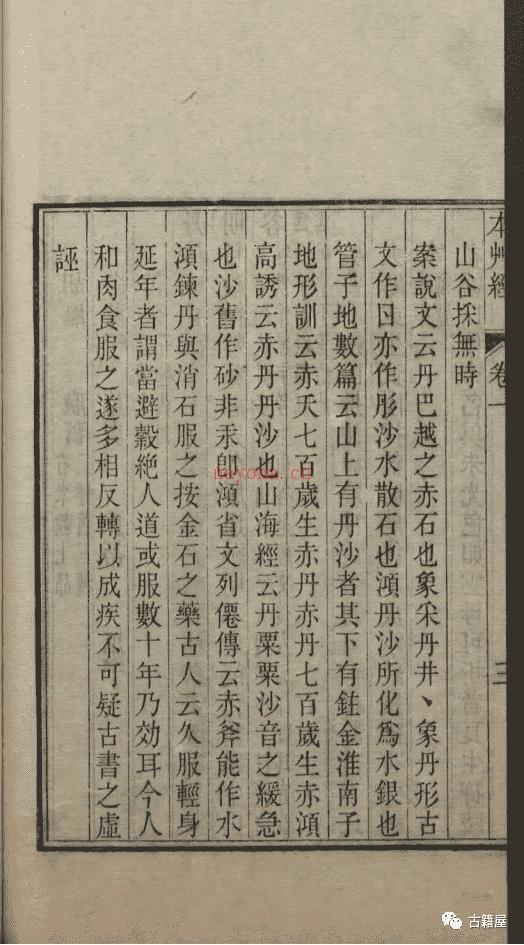 本艸經 卷一 三
山谷採無時
案說文云丹巴越之赤石也象采丹井丶象丹形古
文作𠁿亦作彤沙水散石也澒丹沙所化爲水銀也
管子地數篇云山上有丹沙者其下有鉒金淮南子
地形訓云赤夭七百歲生赤丹赤丹七百歲生赤澒
高誘云赤丹丹沙也山海經云丹粟粟沙音之緩急
也沙舊作砂非汞卽澒省文列僊傳云赤斧能作水
澒鍊丹與消石服之按金石之藥古人云久服輕身
延年者謂當避穀絶人道或服數十年乃効耳今人
和肉食服之遂多相反轉以成疾不可疑古書之虛
誣
nayona.cn
古籍屋